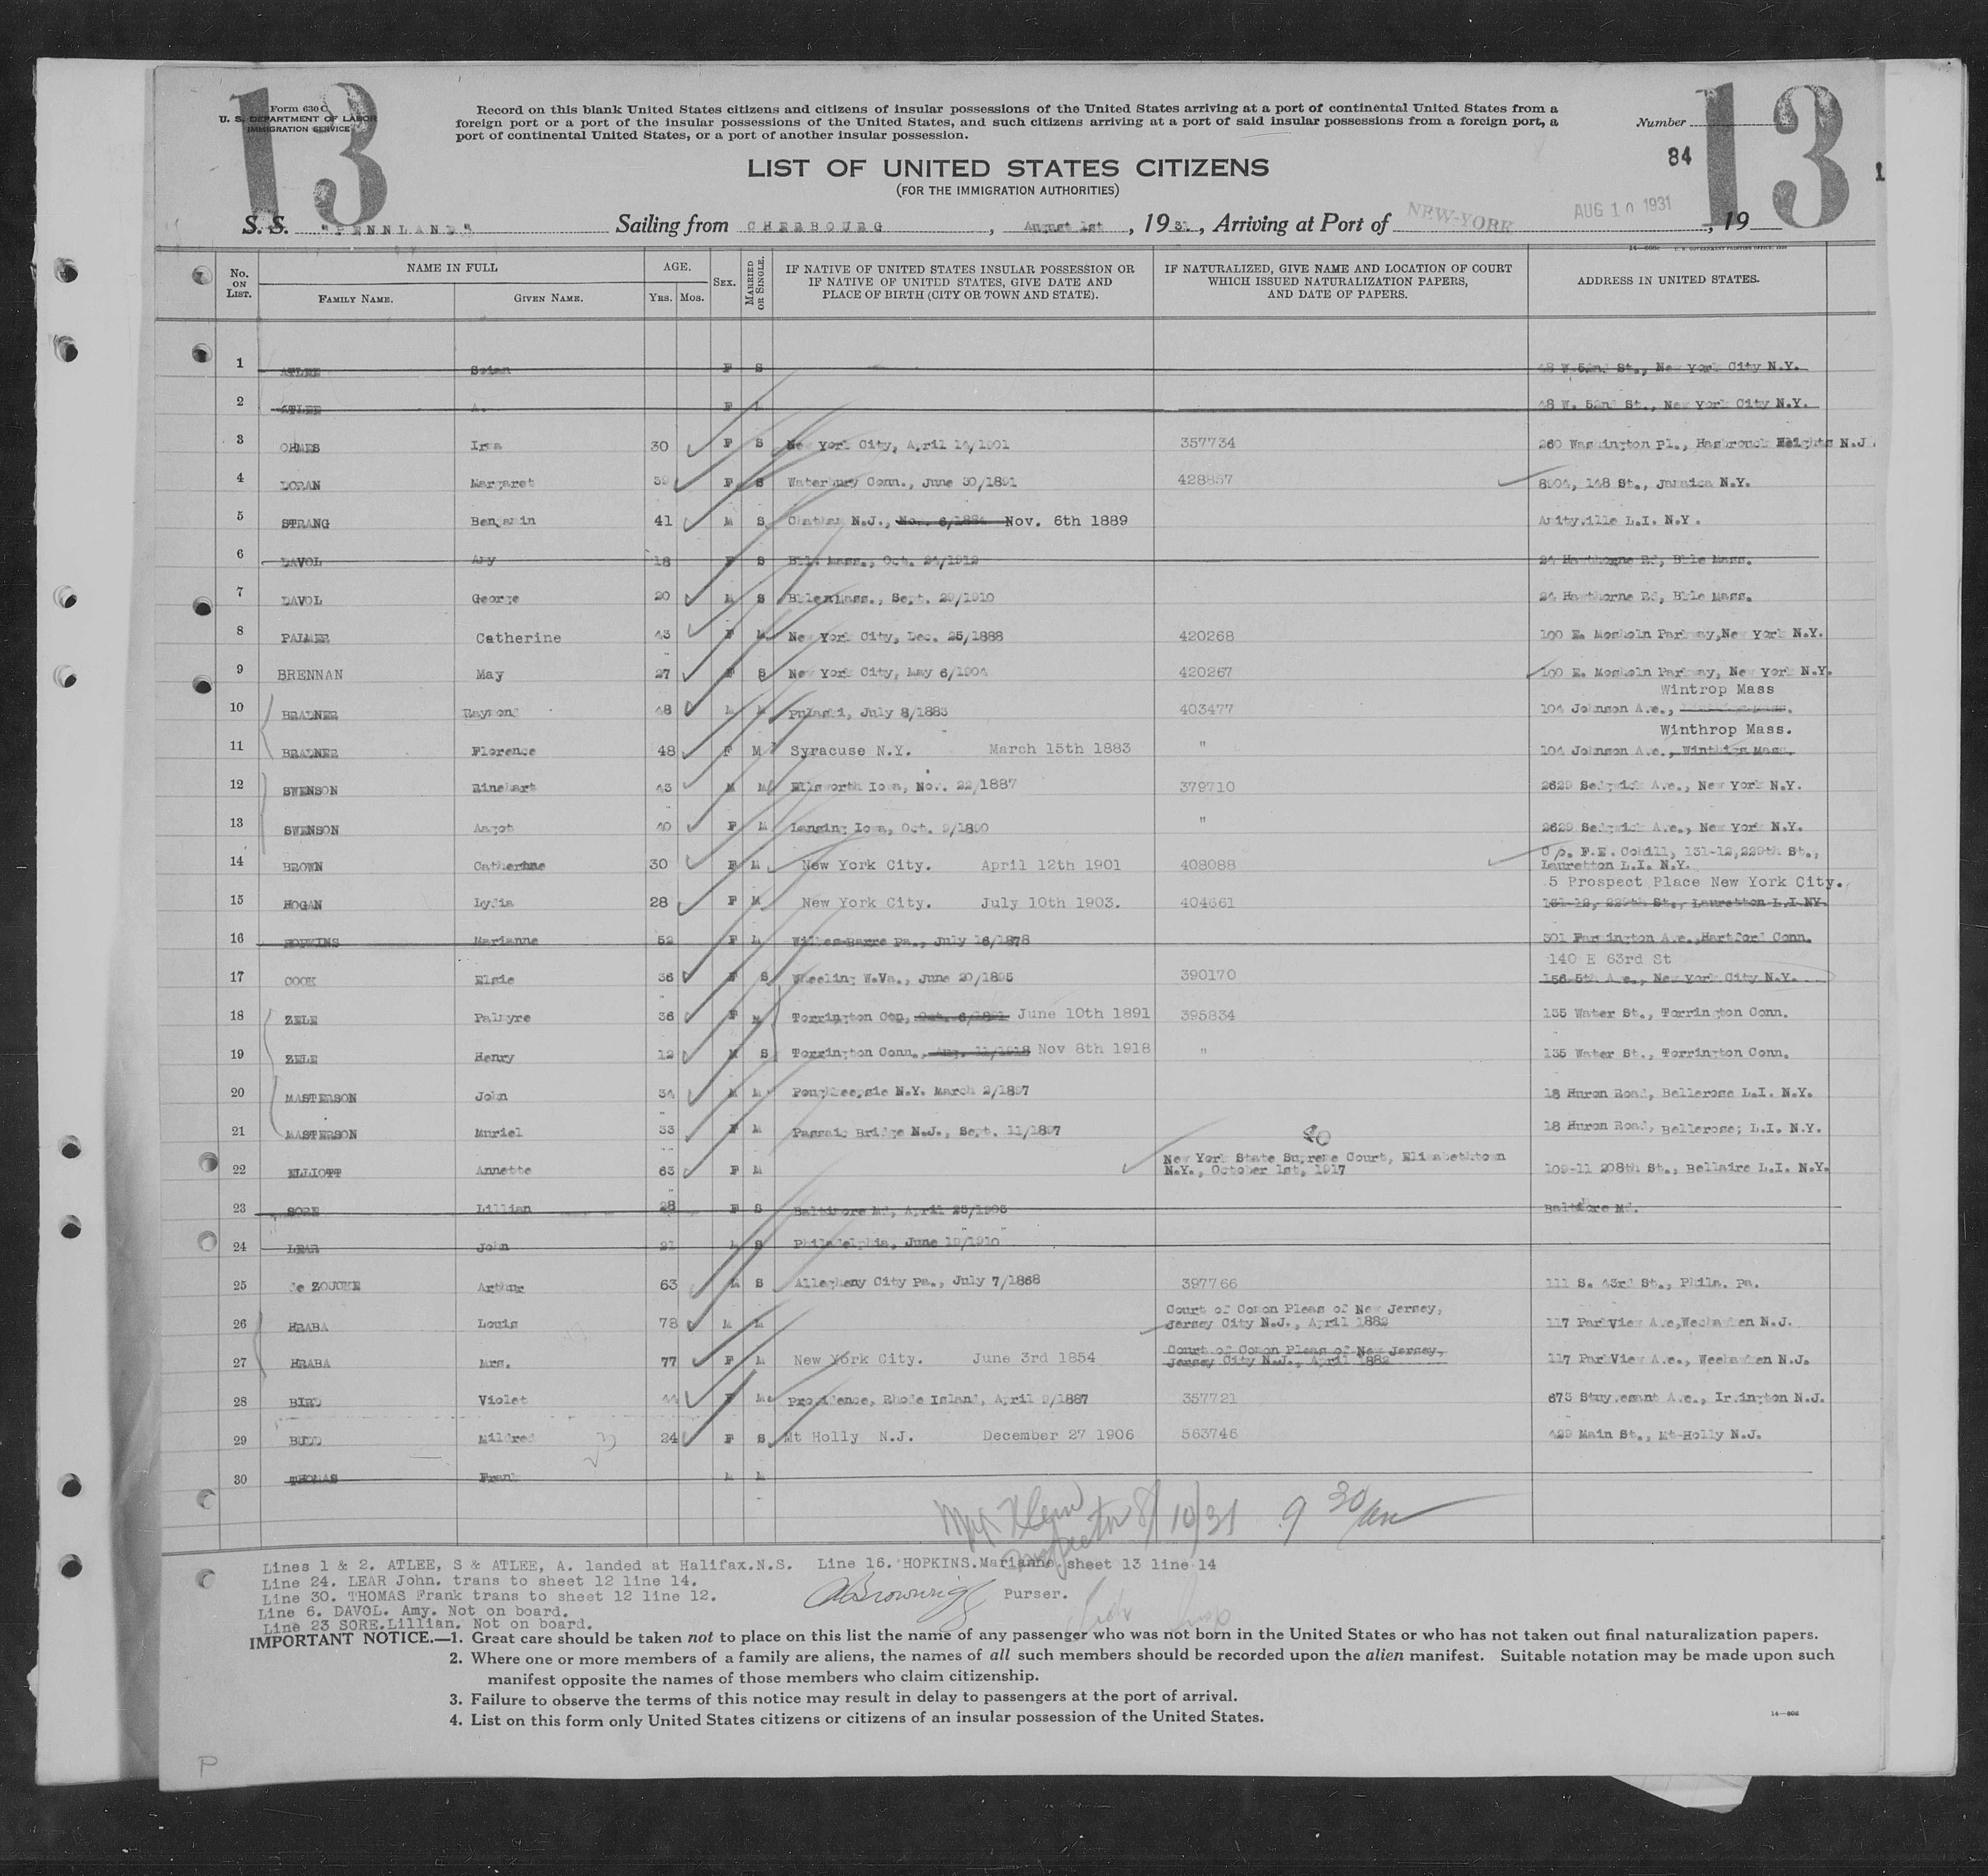 13
13
Form 630 C
U. S. DEPARTMENT OF LABOR
IMMIGRATION SERVICE
Record on this blank United States citizens and citizens of insular possessions of the United States arriving at a port of continental United States from a
foreign port or a port of the insular possessions of the United States, and such citizens arriving at a port of said insular possessions from a foreign port, a
port of continental United States, or a port of another insular possession.
Number
84
1
LIST OF UNITED STATES CITIZENS
(FOR THE IMMIGRATION AUTHORITIES)
S. S. "PENNLAND" Sailing from CHERBOURG, August 1st, 1931, Arriving at Port of NEW-YORK AUG 10 1931, 19
No. ON LIST. NAME IN FULL FAMILY NAME. GIVEN NAME. AGE. YRS. MOS. SEX. MARRIED OR SINGLE. IF NATIVE OF UNITED STATES INSULAR POSSESSION OR IF NATIVE OF UNITED STATES, GIVE DATE AND PLACE OF BIRTH (CITY OR TOWN AND STATE). IF NATURALIZED, GIVE NAME AND LOCATION OF COURT WHICH ISSUED NATURALIZATION PAPERS, AND DATE OF PAPERS. ADDRESS IN UNITED STATES.
1 ATLEE F S 48 W.52nd St., New York City N.Y.
2 ATLEE A. F 48 W. 52nd St., New York City N.Y.
3 OHMES Irma 30 F S New York City, April 14/1901 357734 260 Washington Pl., Hasbrouck Heights N.J.
4 DORAN Margaret 39 F S Waterbury Conn., June 30/1891 428857 8904, 148 St., Jamaica N.Y.
5 STRANG Benjamin 41 M S Chatham N.J., Nov. 6/1884 Nov. 6th 1889 Amityville L.I. N.Y.
6 DAVOL Amy 18 F S Mass., Oct. 24/1912 24 Hawthorne Rd, Blle Mass.
7 DAVOL George 20 M S Mass., Sept. 29/1910 24 Hawthorne Rd, Blle Mass.
8 PALMER Catherine 43 F M New York City, Dec. 25/1888 420268 100 E. Mosholn Parkway, New York N.Y.
9 BRENNAN May 27 F S New York City, May 6/1904 420267 100 E. Mosholn Parkway, New York N.Y.
Wintrop Mass
10 BRADNER Raymond 48 M M Pulaski, July 8/1883 403477 104 Johnson Ave.,
Winthrop Mass.
11 BRADNER Florence 48 F M Syracuse N.Y. March 15th 1883 " 104 Johnson Ave., Mass.
12 SWENSON Rinehart 43 M M Ellsworth Iowa, Nov. 22/1887 379710 2629 Sedgwick Ave., New York N.Y.
13 SWENSON Aagot 40 F M Lansing Iowa, Oct. 9/1890 " 2629 Sedgwick Ave., New York N.Y.
14 BROWN Catherine 30 F M New York City. April 12th 1901 408088 C/o. F.E. Cohill, 131-12,229th St.,
Lauretton L.I. N.Y.
5 Prospect Place New York City.
15 HOGAN Lydia 28 F M New York City. July 10th 1903. 404661 131-12, 229th St., Lauretton L.I NY.
16 HOPKINS Marianne 52 F M Wilkes-Barre Pa., July 16/1878 301 Farmington Ave., Hartford Conn.
140 E 63rd St
17 COOK Elsie 36 F S Wheeling W.Va., June 20/1895 390170 156 5th Ave., New York City N.Y.
18 ZELE Palmyre 36 F M Torrington Con, Oct. 6/1891 June 10th 1891 395834 135 Water St., Torrington Conn.
19 ZELE Henry 12 M S Torrington Conn., Aug. 11/1918 Nov 8th 1918 " 135 Water St., Torrington Conn.
20 MASTERSON John 34 M M Poughkeepsie N.Y. March 2/1897 18 Huron Road, Bellerose L.I. N.Y.
21 MASTERSON Muriel 33 F M Passaic Bridge N.J., Sept. 11/1897 18 Huron Road, Bellerose; L.I. N.Y.
22 ELLIOTT Annette 63 F M New York State Supreme Court, Elizabethtown
N.Y., October 1st, 1917 109-11 208th St., Bellaire L.I. N.Y.
23 SORE Lillian 28 F S Baltimore Md, April 25/1903 Baltimore Md.
24 LEAR John 21 M S Philadelphia, June 19/1910
25 de ZOUCHE Arthur 63 M S Allegheny City Pa., July 7/1868 397766 111 S. 43rd St., Phila. Pa.
26 HRABA Louis 78 M M Court of Comon Pleas of New Jersey,
Jersey City N.J., April 1882 117 Parkview Ave, Weehawken N.J.
27 HRABA Mrs. 77 F M New York City. June 3rd 1854 Court of Comon Pleas of New Jersey,
Jersey City N.J., April 1882 117 ParkView Ave., Weehawken N.J.
28 BIRD Violet 44 F M Providence, Rhode Island, April 9/1887 357721 673 Stuyvesant Ave., Irvington N.J.
29 BUDD Mildred 24 F S Mt Holly N.J. December 27 1906 563746 429 Main St., Mt-Holly N.J.
30 THOMAS Frank M M
Inspector 8/10/31 9 30 am
Lines 1 & 2. ATLEE, S & ATLEE, A. landed at Halifax.N.S. Line 16. HOPKINS.Marianne. sheet 13 line 14
Line 24. LEAR John. trans to sheet 12 line 14.
Line 30. THOMAS Frank trans to sheet 12 line 12.
Purser.
Line 6. DAVOL. Amy. Not on board.
Line 23 SORE.Lillian. Not on board.
IMPORTANT NOTICE.—1. Great care should be taken not to place on this list the name of any passenger who was not born in the United States or who has not taken out final naturalization papers.
2. Where one or more members of a family are aliens, the names of all such members should be recorded upon the alien manifest. Suitable notation may be made upon such
manifest opposite the names of those members who claim citizenship.
3. Failure to observe the terms of this notice may result in delay to passengers at the port of arrival.
4. List on this form only United States citizens or citizens of an insular possession of the United States.
P